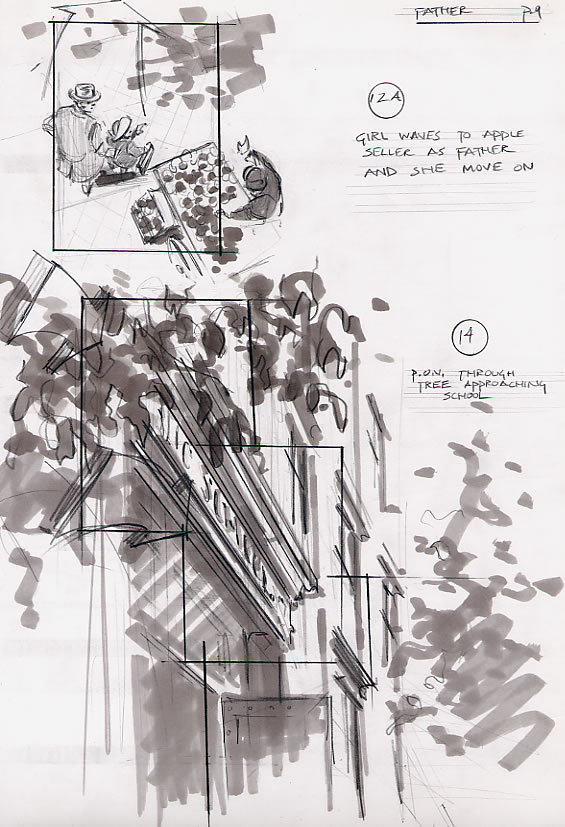 FATHER P.9
12A
GIRL WAVES TO APPLE
SELLER AS FATHER
AND SHE MOVE ON
14
THROUGH
TREE APPROACHING
SCHOOL